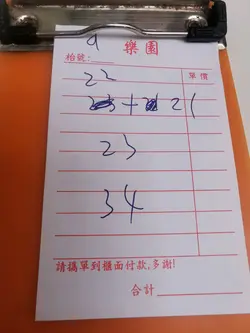 9
樂園
枱號:
單價
22
+ 21
23
34
請攜單到櫃面付款,多謝!
合計